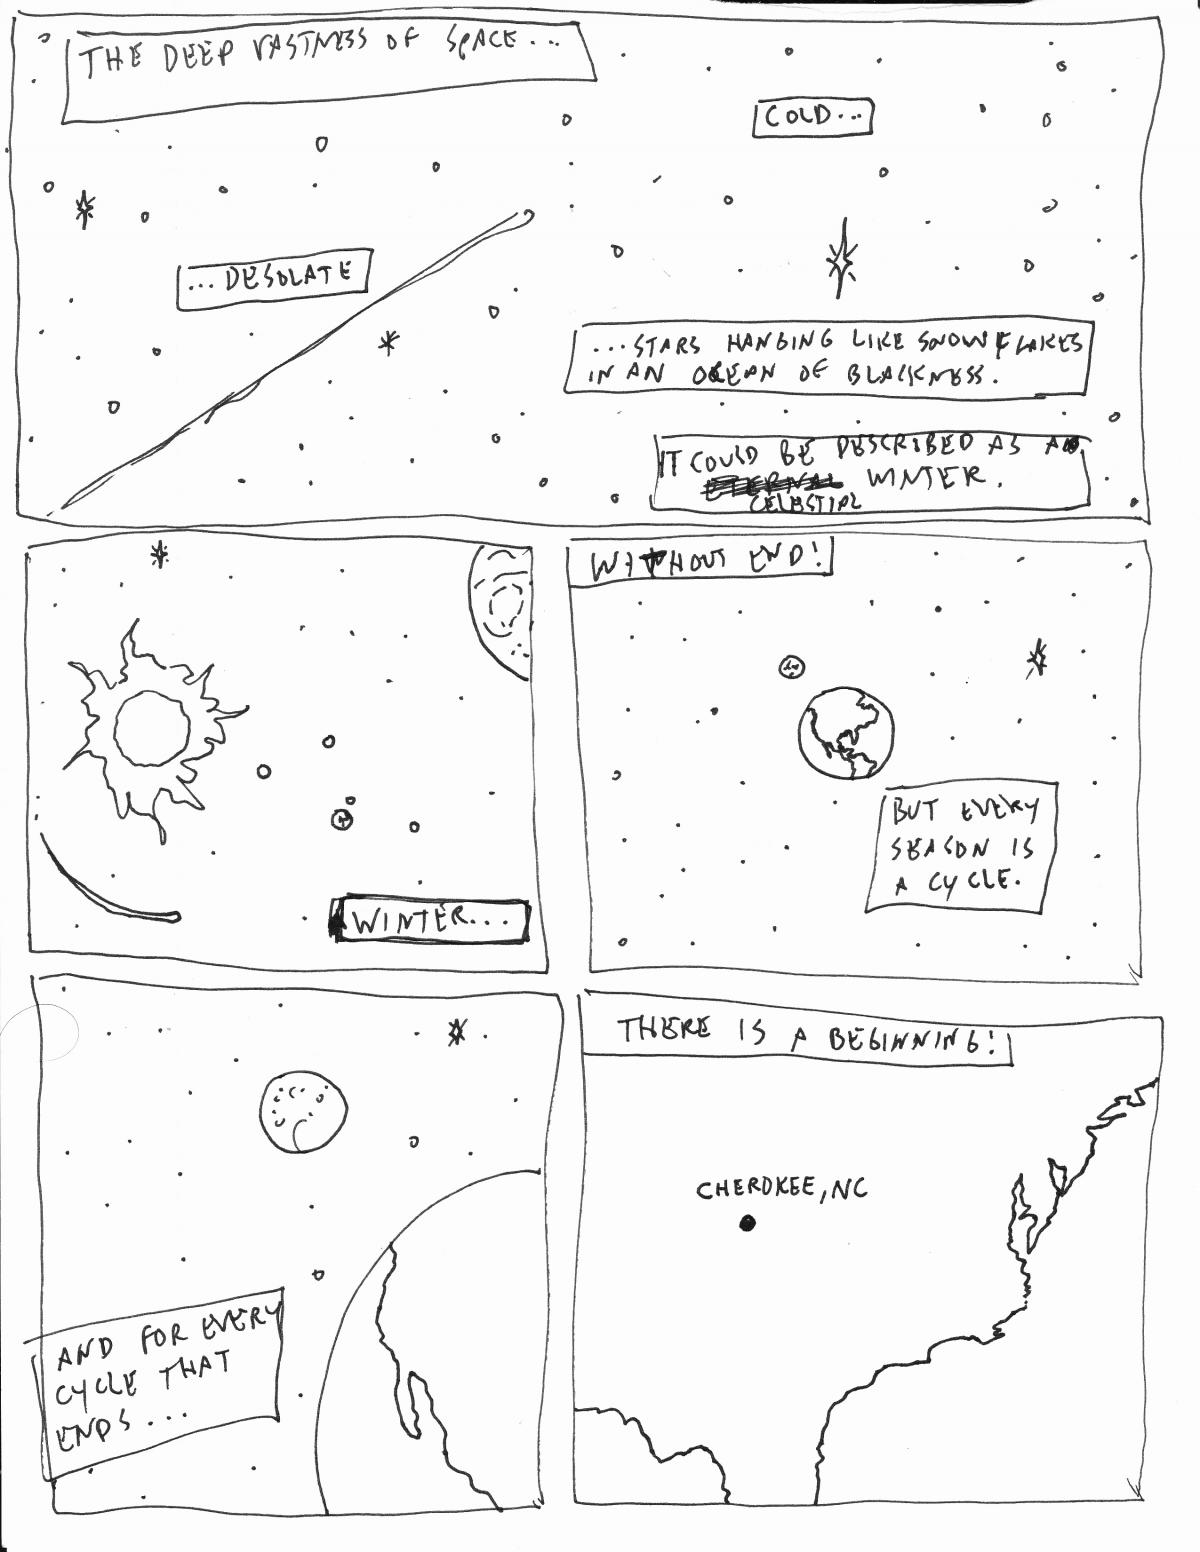 THE DEEP VASTNESS OF SPACE...
COLD...
...DESOLATE
...STARS HANGING LIKE SNOWFLAKES
IN AN OCEAN OF BLACKNESS.
IT COULD BE DESCRIBED AS A
ETERNAL WINTER.
CELESTIAL
WINTER...
WITHOUT END!
BUT EVERY
SEASON IS
A CYCLE.
AND FOR EVERY
CYCLE THAT
ENDS...
THERE IS A BEGINNING!
CHEROKEE, NC